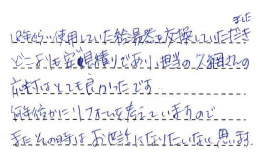 また
18年くらい使用していた給湯器を交換していただき
どこよりも安い見積りであり、担当の
応対はとても良かったです
何年後かにリフォームを考えていますので
またその時はお世話になりたいなと思います